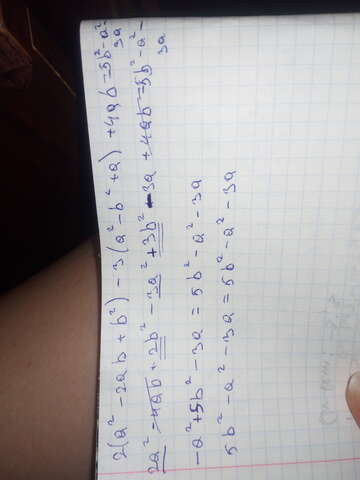 2(a² - 2ab + b²) - 3(a² - b² + a) + 4ab = 5b² - a² - 3a
2a² - 4ab + 2b² - 3a² + 3b² - 3a + 4ab = 5b² - a² - 3a
- a² + 5b² - 3a = 5b² - a² - 3a
5b² - a² - 3a = 5b² - a² - 3a